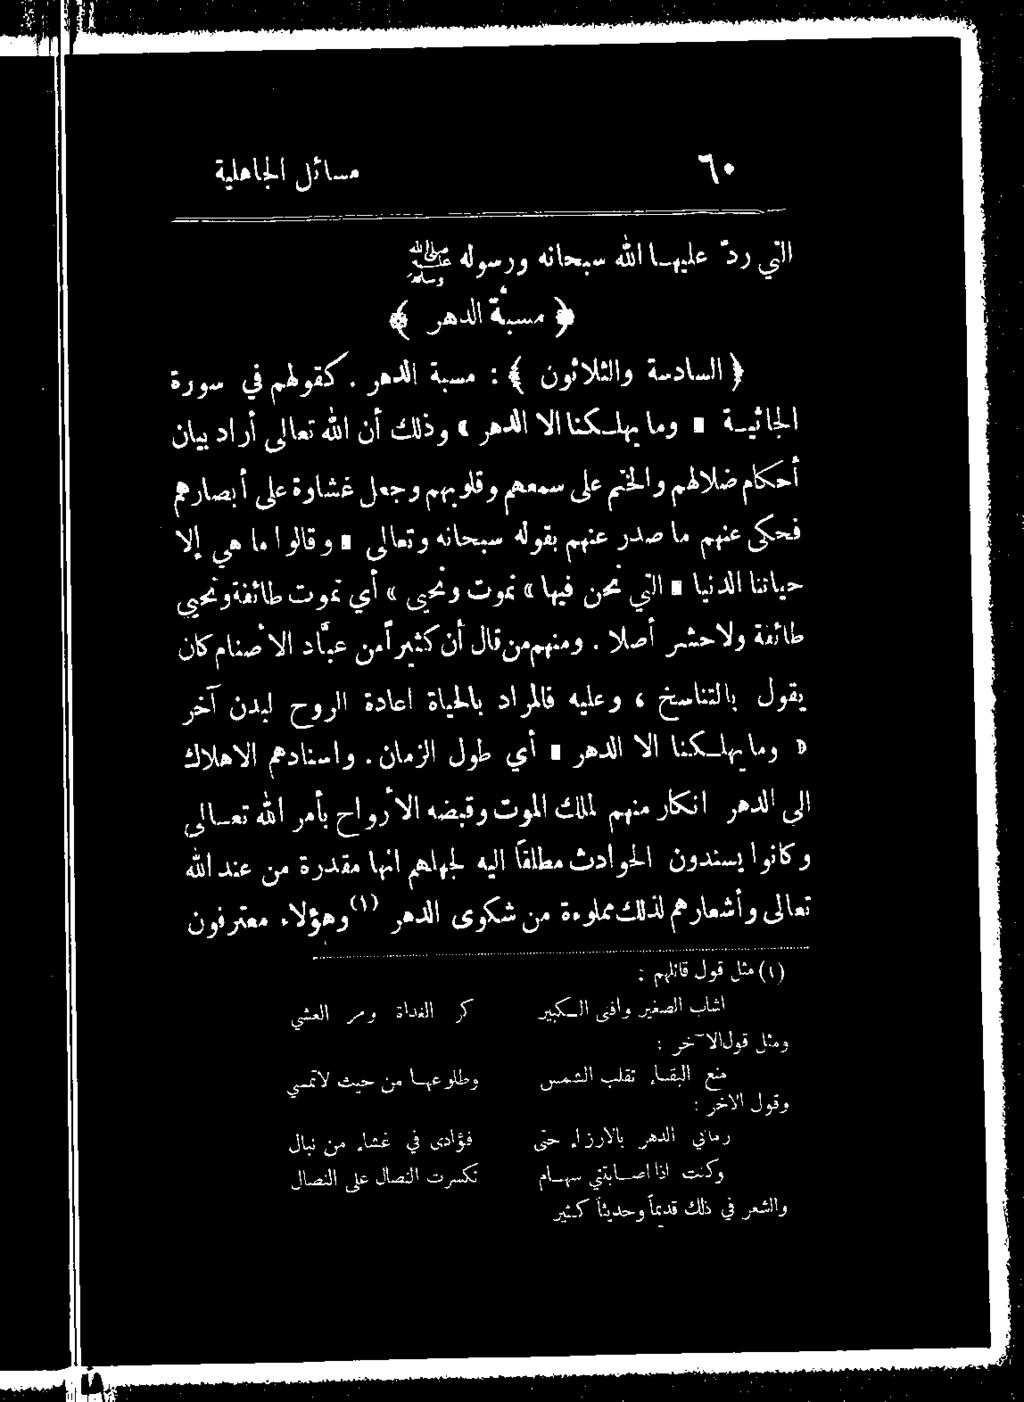 ٦٠ مسائل الجاهلية
التي ردّ عليهـا الله سبحانه ورسوله ﷺ
﴿ مسبة الدهر ﴾
﴿ السادسة والثلاثون ﴾ : مسبة الدهر . كقولهم في سورة
الجاثيـة « وما يهلـكنا الا الدهر » وذلك أن الله تعالى أراد بيان
أحكام ضلالهم والختم على سمعهم وقلوبهم وجعل غشاوة على أبصارهم
فحكى عنهم ما صدر عنهم بقوله سبحانه وتعالى « وقالوا ما هي إلا
حياتنا الدنيا » التي نحن فيها « نموت ونحيى » أي تموت طائفة وتحيى
طائفة ولا حشر أصلا . ومنهم من قال أن كثيراً من عبّاد الأصنام كان
يقول بالتناسخ ، وعليه فالمراد بالحياة اعادة الروح لبدن آخر
« وما يهلـكنا الا الدهر » أي طول الزمان . واسنادهم الاهلاك
الى الدهر انكار منهم لملك الموت وقبضه الأرواح بأمر الله تعـالى
وكانوا يسندون الحوادث مطلقاً اليه لجهلهم انها مقدرة من عند الله
تعالى وأشعارهم لذلك مملوءة من شكوى الدهر (١) وهؤلاء معترفون
(١) مثل قول قائلهم :
اشاب الصغير وافنى الـكبير كر الغداة ومر العشي
ومثل قول الآخر :
منع البقـاء تقلب الشمس وطلوعهـا من حيث لا تمسي
وقول الاخر :
رماني الدهر بالارزاء حتى فؤادى في غشاء من نبال
وكنت اذا اصـابتني سهـام تكسرت النصال على النصال
والشعر في ذلك قديماً وحديثاً كثير